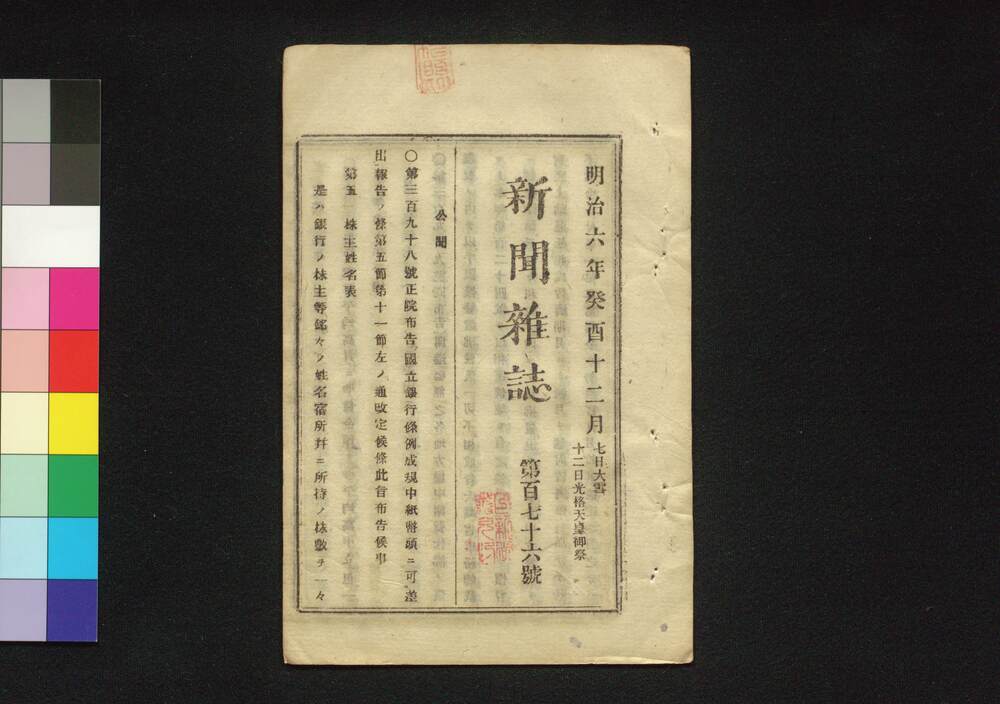 明治六年癸酉十二月
七日大雪
十二日光格天皇御祭
新聞雜誌
第百七十六號
公聞
〇第三百九十八號正院布告國立銀行條例成規中紙幣頭ニ可差
出報告ノ條第五節第十一節左ノ通改定候條此旨布告候事
第五 株主姓名表
是ハ銀行ノ株主等銘々ノ姓名宿所幷ニ所持ノ株數ヲ一々